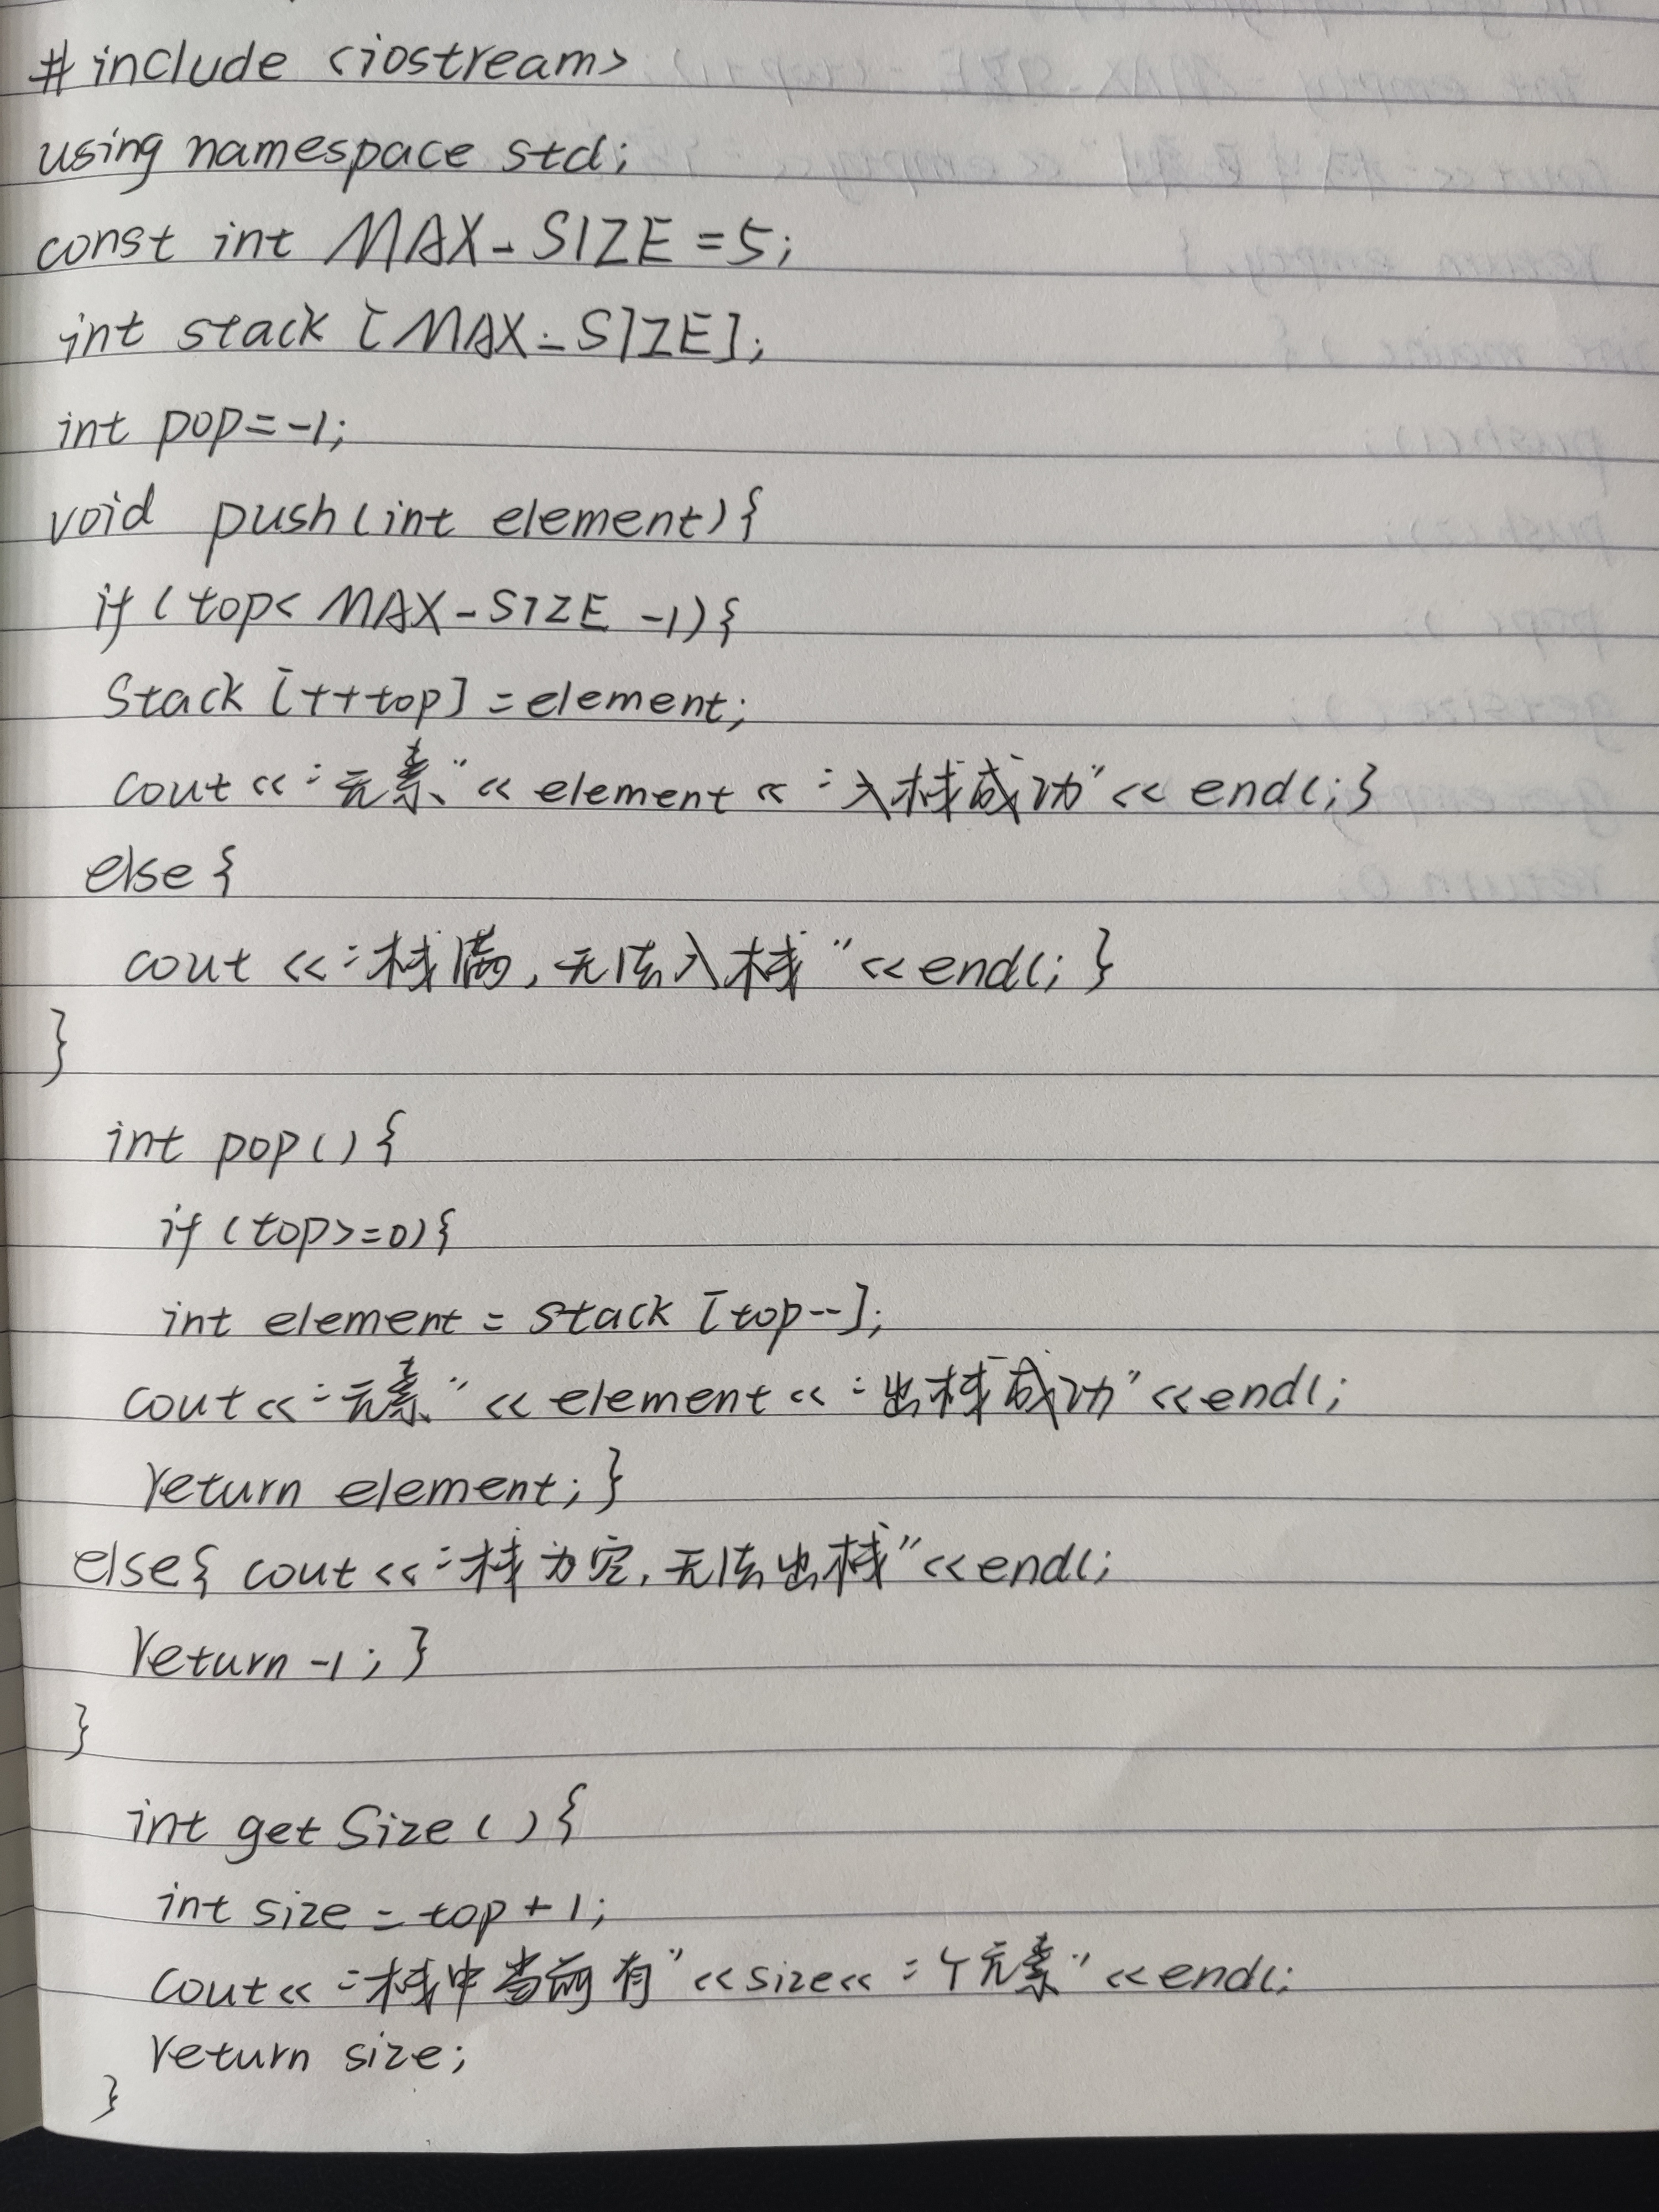 #include <iostream>
using namespace std;
const int MAX_SIZE=5;
int stack [MAX_SIZE];
int pop=-1;
void push(int element){
if (top< MAX_SIZE -1){
Stack [++top] =element;
cout <<"元素"<< element << "入栈成功"<< endl;}
else{
cout <<"栈满,无法入栈"<<endl; }
}
int pop(){
if (top>=0){
int element = stack [top--];
cout<<"元素"<<element<<"出栈成功"<<endl;
return element;}
else{ cout<<"栈为空,无法出栈"<<endl;
return -1; }
}
int getSize(){
int size = top+1;
cout<<"栈中当前有"<<size<<"个元素"<<endl;
return size;
}